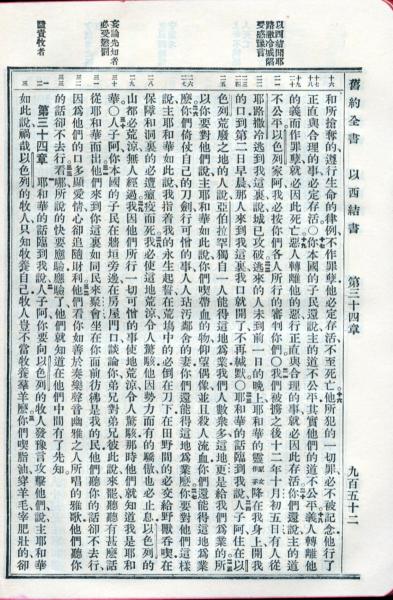 舊約全書 以西結書 第三十四章 九百五十二
以西結聞耶
路撒冷城陷
受感豫言
和所搶奪的遵行生命的律例不作罪孽他必定存活不至死亡他所犯的一切罪必不被記念他行了
正直與合理的事必定存活○你本國的子民還說主的道不公平其實他們的道不公平義人轉離他
的義而作罪孽就必因此死亡惡人轉離他的惡行正直與合理的事就必因此存活你們還說主的道
不公平以色列家阿我必按你們各人所行的審判你們○我們被擄之後十二年十月初五日有人從
耶路撒冷逃到我這裏說城已攻破逃來的人未到前一日的晚上耶和華的靈原文作手降在我身上開我
的口到第二日早晨那人來到我這裏我口就開了不再緘默○耶和華的話臨到我說人子阿住在以
色列荒廢之地的人說亞伯拉罕獨自一人能得這地爲業我們人數衆多這地更是給我們爲業的所
以你要對他們說主耶和華如此說你們喫帶血的物仰望偶像並且殺人流血你們還能得這地爲業
麼你們倚仗自己的刀劍行可憎的事人人玷汚鄰舍的妻你們還能得這地爲業麼你要對他們這樣
說主耶和華如此說我指著我的永生起誓在荒塲中的必倒在刀下在田野間的必交給野獸吞喫在
保障和洞裏的必遭瘟疫而死我必使這地荒涼令人驚駭他因勢力而有的驕傲也必止息以色列的
山都必荒涼無人經過我因他們所行一切可憎的事使地荒涼令人驚駭那時他們就知道我是耶和
妄論先知者
必受懲罰
華○人子阿你本國的子民在牆垣旁邊在房屋門口談論你弟兄對弟兄彼此說來罷聽聽有甚麼話
從耶和華而出他們來到你這裏如同民來聚會坐在你面前彷彿是我的民他們聽你的話卻不去行
因爲他們的口多顯愛情心卻追隨財利他們看你如善於奏樂聲音幽雅之人所唱的雅歌他們聽你
的話卻不去行看哪所說的快要應驗應驗了他們就知道在他們中間有了先知
職責牧者
第三十四章 耶和華的話臨到我說人子阿你要向以色列的牧人發豫言攻擊他們說主耶和華
如此說禍哉以色列的牧人只知牧養自己牧人豈不當牧養羣羊麼你們喫脂油穿羊毛宰肥壯的卻